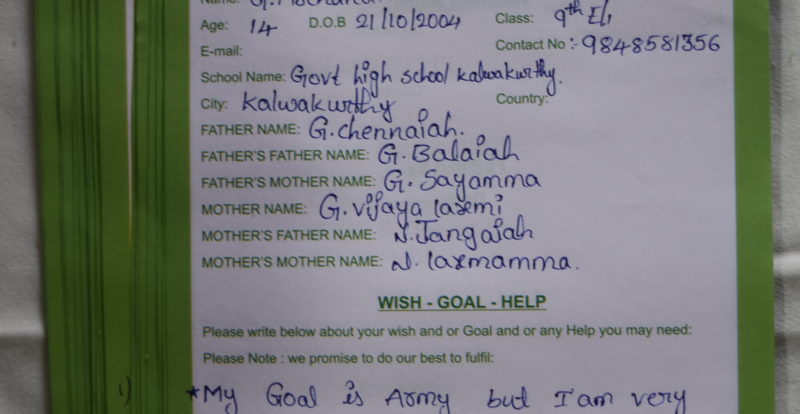 Name: G.
Age: 14 D.O.B 21/10/2004 Class: 9th E/M
E-mail: Contact No :- 9848581356
School Name: Govt high school kalwakurthy.
City: kalwakurthy Country:
FATHER NAME: G.chennaiah.
FATHER'S FATHER NAME: G. Balaiah
FATHER'S MOTHER NAME: G. Sayamma
MOTHER NAME: G. vijaya laxmi
MOTHER'S FATHER NAME: N. Jangaiah
MOTHER'S MOTHER NAME: N. laxmamma.
WISH - GOAL - HELP
Please write below about your wish and or Goal and or any Help you may need:
Please Note : we promise to do our best to fulfil:
1) *My Goal is Army but I am very